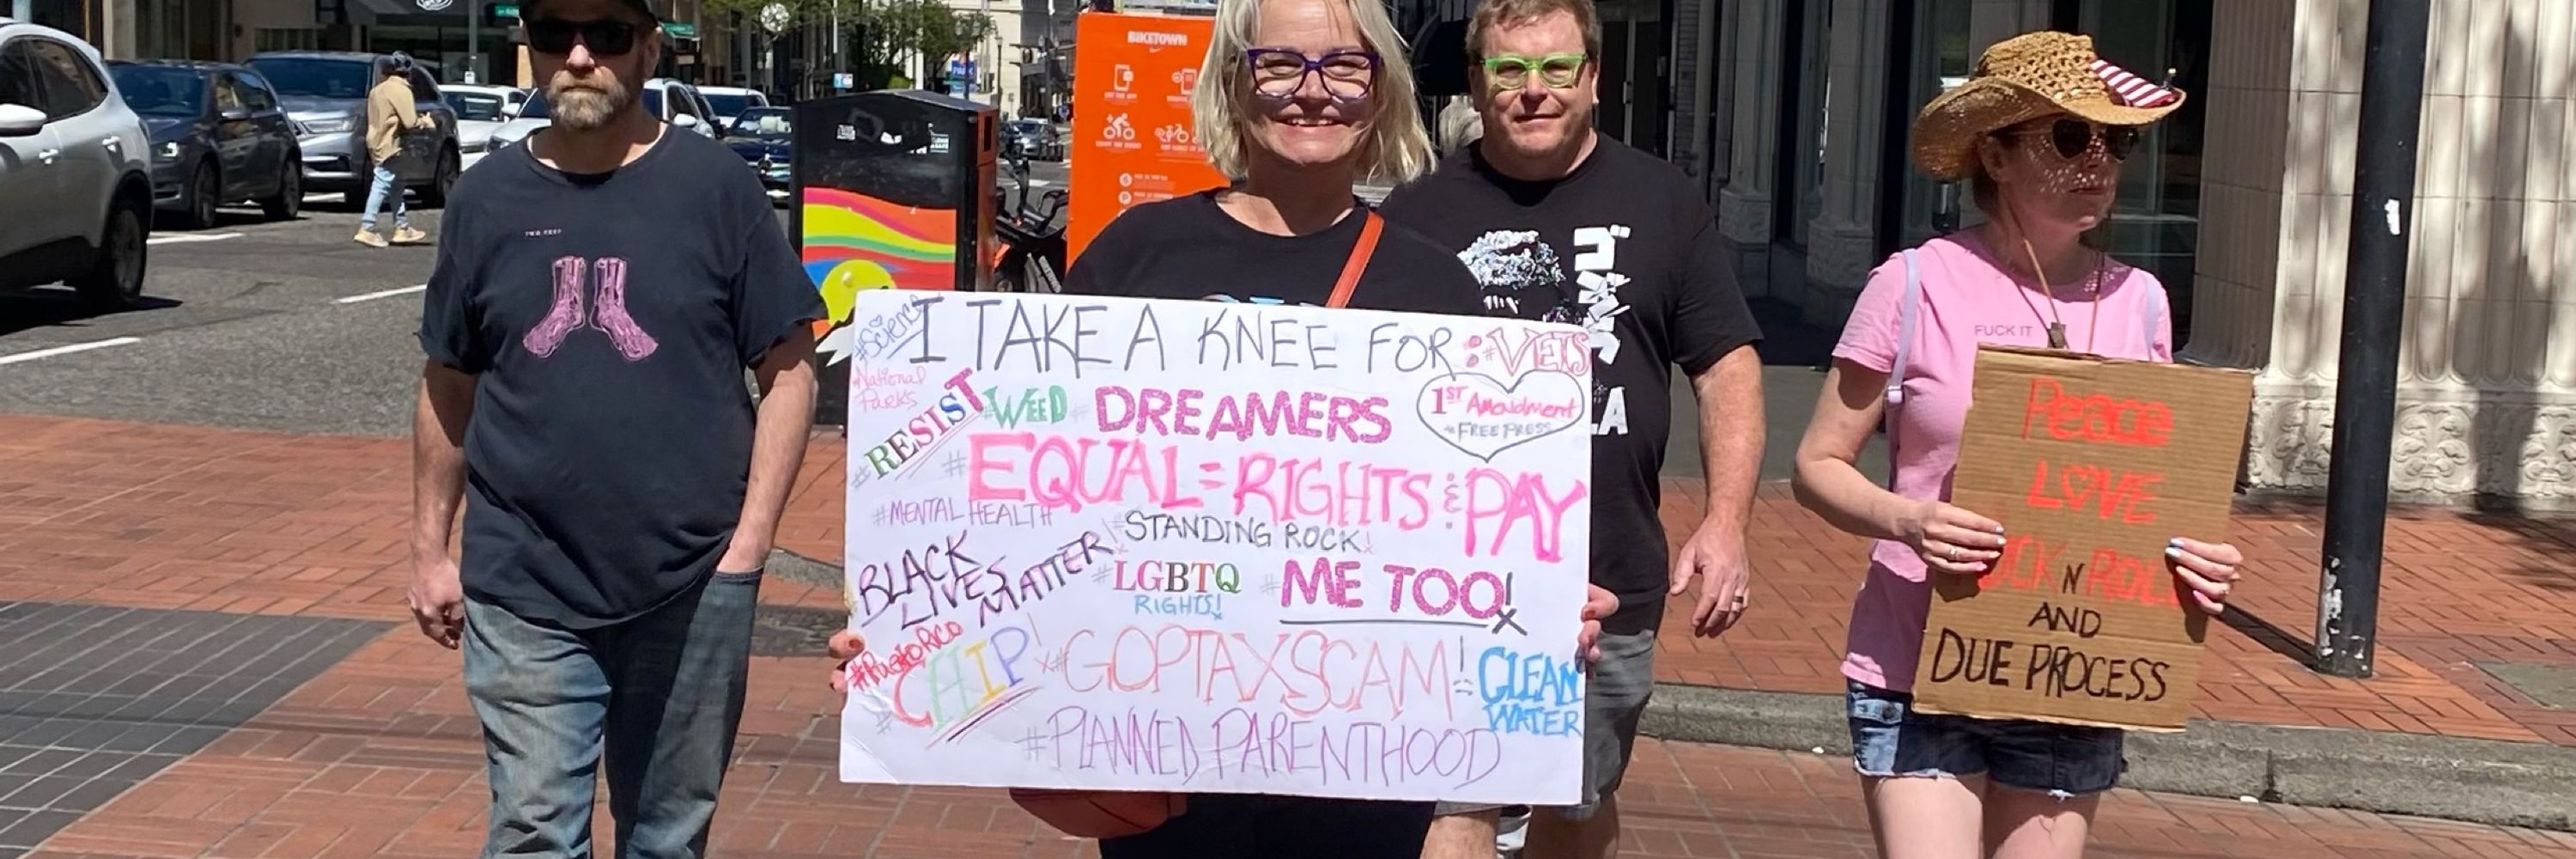 BIKETOWN
TWO FEET
#Science
I TAKE A KNEE FOR:
#VETS
#National
Parks
#RESIST
#WEED
#DREAMERS
1ST Amendment
#FREE PRESS
#EQUAL=RIGHTS & PAY
#MENTAL HEALTH
#STANDING ROCK!
BLACK
LIVES
MATTER!
#LGBTQ
RIGHTS!
#ME TOO!
#PuertoRico
#CHIP!
#GOPTAXSCAM!
CLEAN
WATER
#PLANNED PARENTHOOD
ゴジラ
LA
FUCK IT
Peace
LOVE
ROCK N ROLL
AND
DUE PROCESS